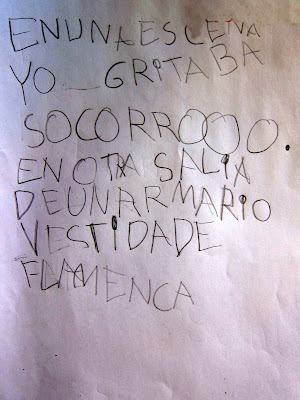 EN UNA ESCENA
YO GRITABA
SOCORROOO.
EN OTRA SALIA
DE UN ARMARIO
VESTIDA DE
FLAMENCA